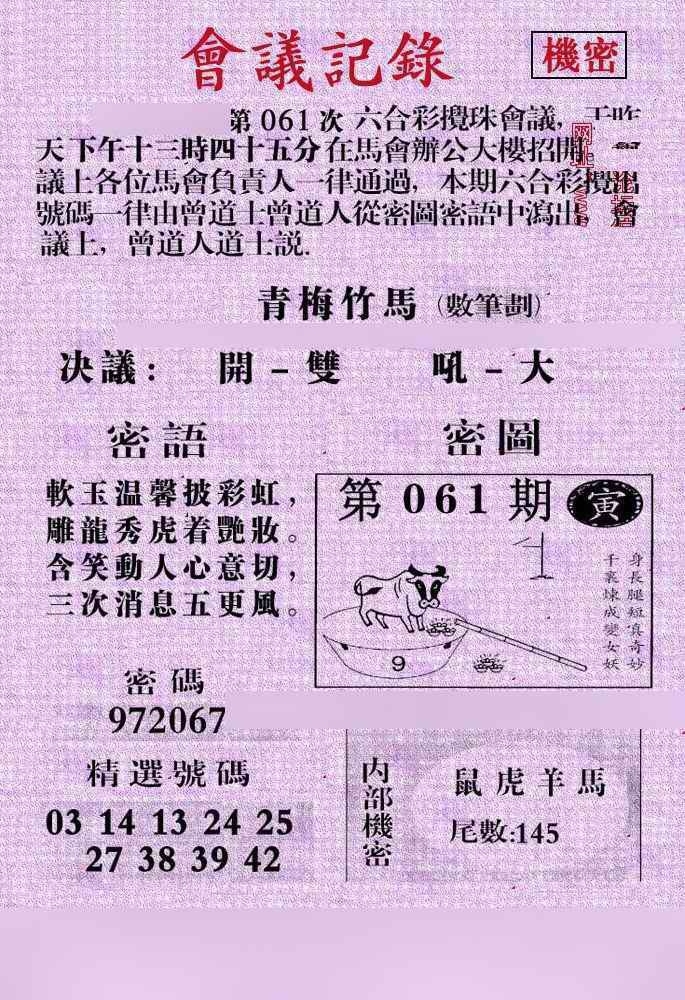 會議記錄
機密
第 061 次 六合彩攪珠會議，于昨
天下午十三時四十五分在馬會辦公大樓招開
議上各位馬會負責人一律通過，本期六合彩攪出
號碼一律由曾道士曾道人從密圖密語中瀉出，會
議上，曾道人道士説.
青梅竹馬（數筆劃）
决議： 開－雙 吼－大
密語
軟玉温馨披彩虹，
雕龍秀虎着艷妝。
含笑動人心意切，
三次消息五更風。
密圖
第 061 期 寅
身長腿短真奇妙
千裏煉成變女妖
9
密碼
972067
精選號碼
03 14 13 24 25
27 38 39 42
内部機密
鼠虎羊馬
尾數:145